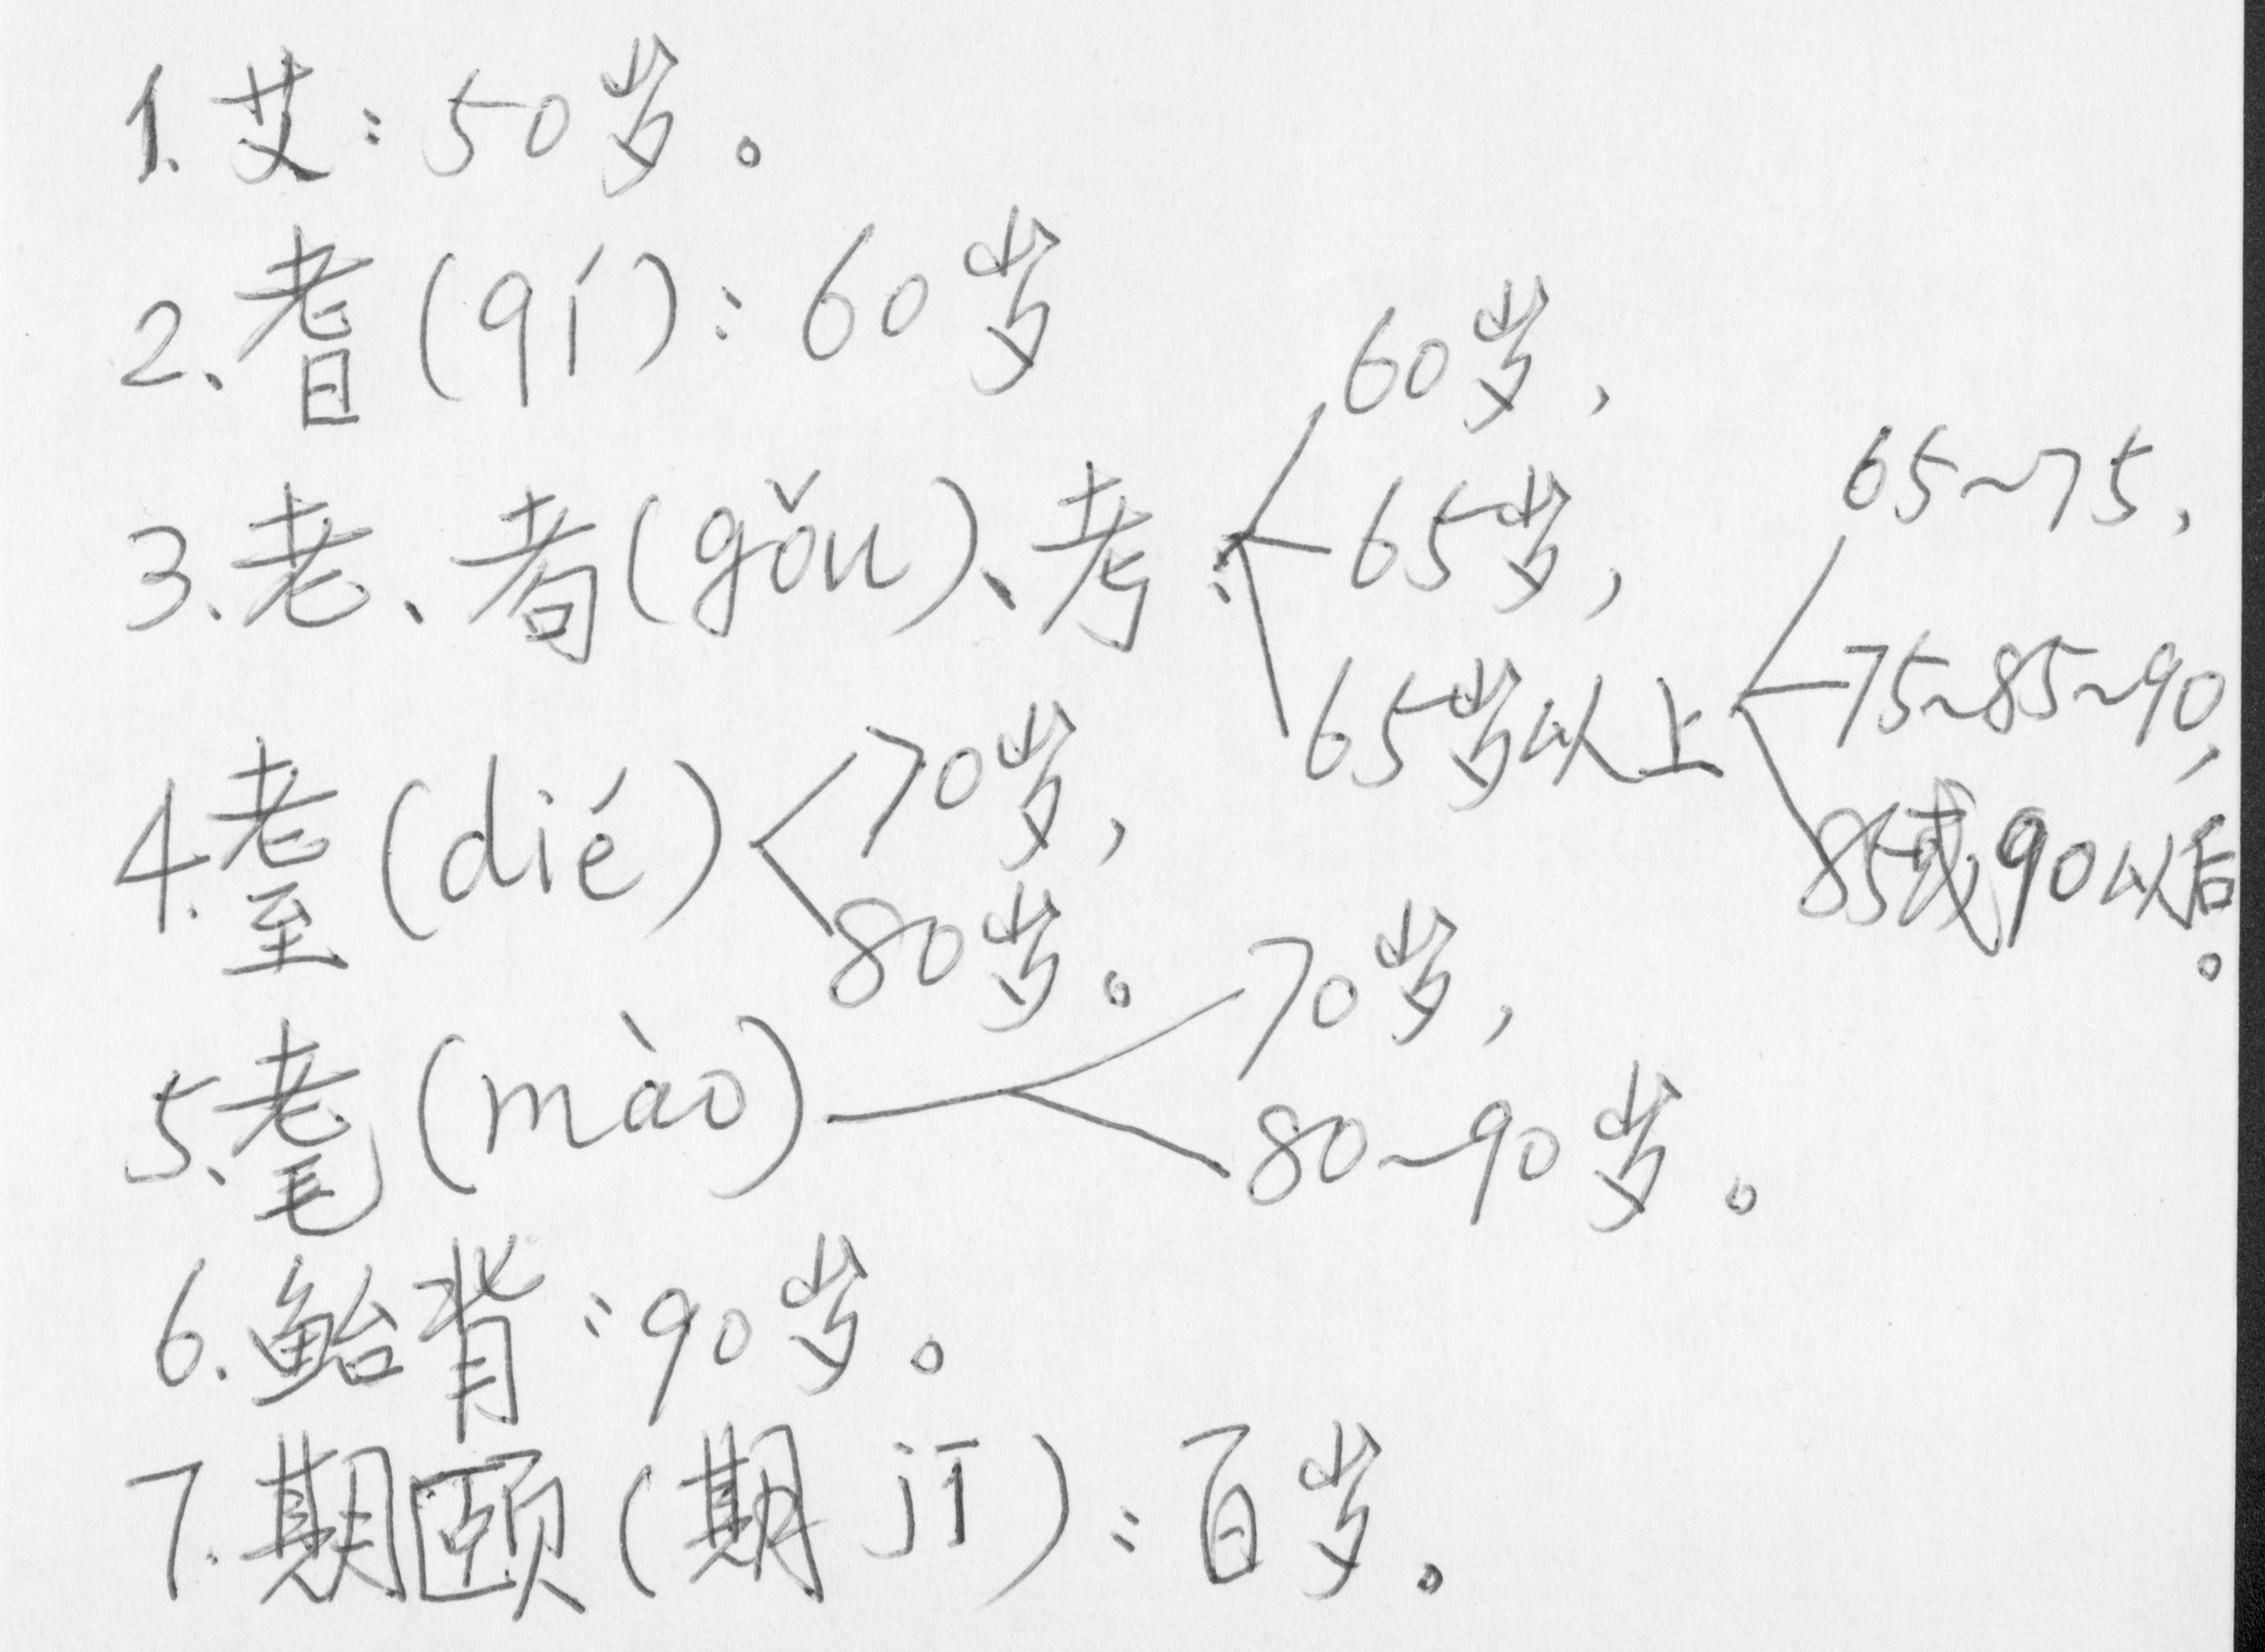 1. 艾：50岁。
2、耆(qí)：60岁
3、老、耇(gǒu)、考：
60岁，
65岁，
65岁以上
65~75，
75~85~90，
85或90以后。
4.耋(dié)
70岁，
80岁。
5、耄(mào)
70岁，
80~90岁。
6.鲐背：90岁。
7.期颐(期jī)：百岁。